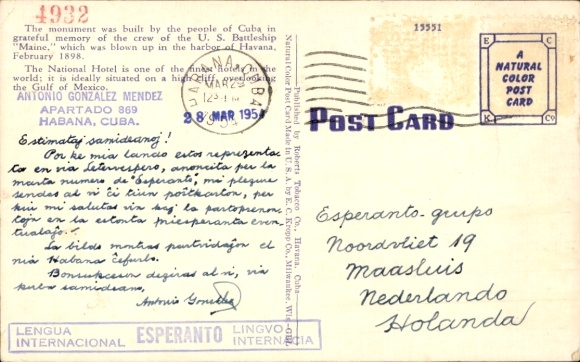 4932
The monument was built by the people of Cuba in
grateful memory of the crew of the U. S. Battleship
"Maine," which was blown up in the harbor of Havana,
February 1898.
The National Hotel is one of the finest hotels in the
world; it is ideally situated on a high cliff, overlooking
the Gulf of Mexico.
ANTONIO GONZALEZ MENDEZ
APARTADO 869
HABANA, CUBA.
HABANA CUBA
MAR 2
1954
28 MAR 1954
15551
E C
K Co
A
NATURAL
COLOR
POST
CARD
POST CARD
Published by Roberts Tobacco Co., Havana, Cuba
Natural Color Post Card Made in U. S. A. by E. C. Kropp Co., Milwaukee, Wis.
Estimataj samideanoj!
Por ke mia lando estos reprezenta-
ta en via Letervespero, anoncita per la
marta numero de "Esperanto", mi plezure
sendas al vi ĉi tiun poŝtkarton, per
kiu mi salutas vin kaj la partoprenon-
tojn en la estonta priesperanta even-
tualaĵo.
La bildo montras partvidaĵon el
nia Habana ĉefurbo.
Bonsukceson deziras al vi, via
kuba samideano,
Antonio González
Esperanto-grupo
Noordvliet 19
Maasluis
Nederlando
Holanda
LENGUA
INTERNACIONAL
ESPERANTO
LINGVO
INTERNACIA